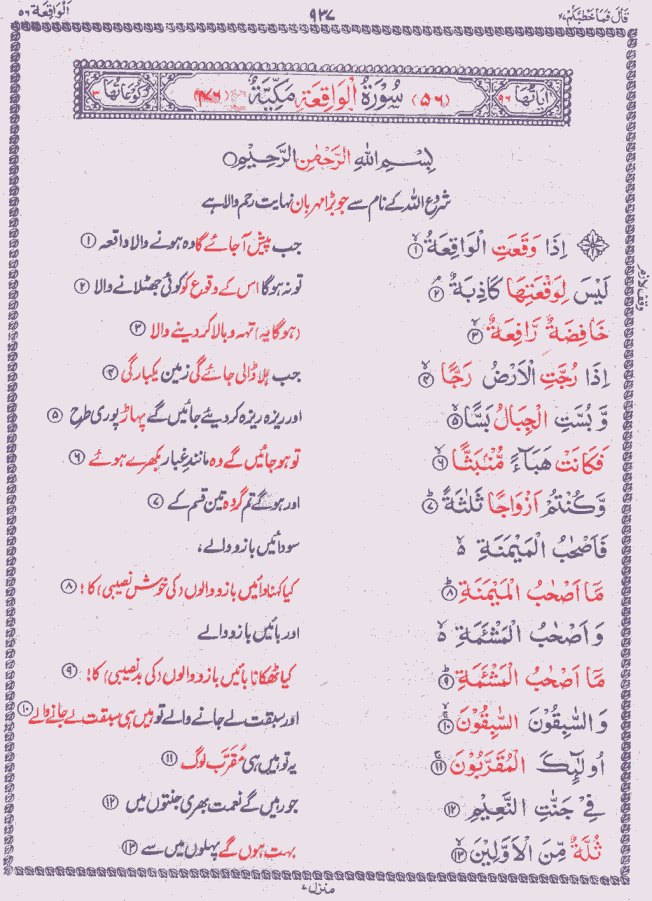 قَالَ فَمَا خَطْبُكُمْ ۲۷ ۹۳۷ اَلْوَاقِعَة ۵۶
اٰیَاتُهَا ۹۶ (۵۶) سُوْرَةُ الْوَاقِعَةِ مَكِّیَّةٌ (۴۶) رُكُوْعَاتُهَا ۳
بِسْمِ اللّٰهِ الرَّحْمٰنِ الرَّحِیْمِ
شروع اللہ کے نام سے جو بڑا مہربان نہایت رحم والا ہے
اِذَا وَقَعَتِ الْوَاقِعَةُ ۱ جب پیش آ جائے گا وہ ہونے والا واقعہ ۱
لَیْسَ لِوَقْعَتِهَا كَاذِبَةٌ ۲ تو نہ ہوگا اس کے وقوع کو کوئی جھٹلانے والا ۲
خَافِضَةٌ رَّافِعَةٌ ۳ (ہوگا یہ) تہہ و بالا کر دینے والا ۳
اِذَا رُجَّتِ الْاَرْضُ رَجًّا ۴ جب ہلا ڈالی جائے گی زمین یکبارگی ۴
وَّ بُسَّتِ الْجِبَالُ بَسًّا ۵ اور ریزہ ریزہ کر دیئے جائیں گے پہاڑ پوری طرح ۵
فَكَانَتْ هَبَآءً مُّنْۢبَثًّا ۶ تو ہو جائیں گے وہ مانند غبار بکھرے ہوئے ۶
وَّ كُنْتُمْ اَزْوَاجًا ثَلٰثَةً ۷ اور ہوگے تم گروہ تین قسم کے ۷
فَاَصْحٰبُ الْمَیْمَنَةِ ۵ سو دائیں بازو والے،
مَاۤ اَصْحٰبُ الْمَیْمَنَةِ ۸ کیا کہنا دائیں بازو والوں (کی خوش نصیبی) کا! ۸
وَ اَصْحٰبُ الْمَشْـَٔمَةِ ۵ اور بائیں بازو والے
مَاۤ اَصْحٰبُ الْمَشْـَٔمَةِ ۹ کیا ٹھکانا بائیں بازو والوں (کی بدنصیبی) کا! ۹
وَ السّٰبِقُوْنَ السّٰبِقُوْنَ ۱۰ اور سبقت لے جانے والے تو ہیں ہی سبقت لے جانے والے ۱۰
اُولٰٓىِٕكَ الْمُقَرَّبُوْنَ ۱۱ یہ تو ہیں ہی مُقرَّب لوگ ۱۱
فِیْ جَنّٰتِ النَّعِیْمِ ۱۲ جو رہیں گے نعمت بھری جنتوں میں ۱۲
ثُلَّةٌ مِّنَ الْاَوَّلِیْنَ ۱۳ بہت ہوں گے پہلوں میں سے ۱۳
منزل ۷